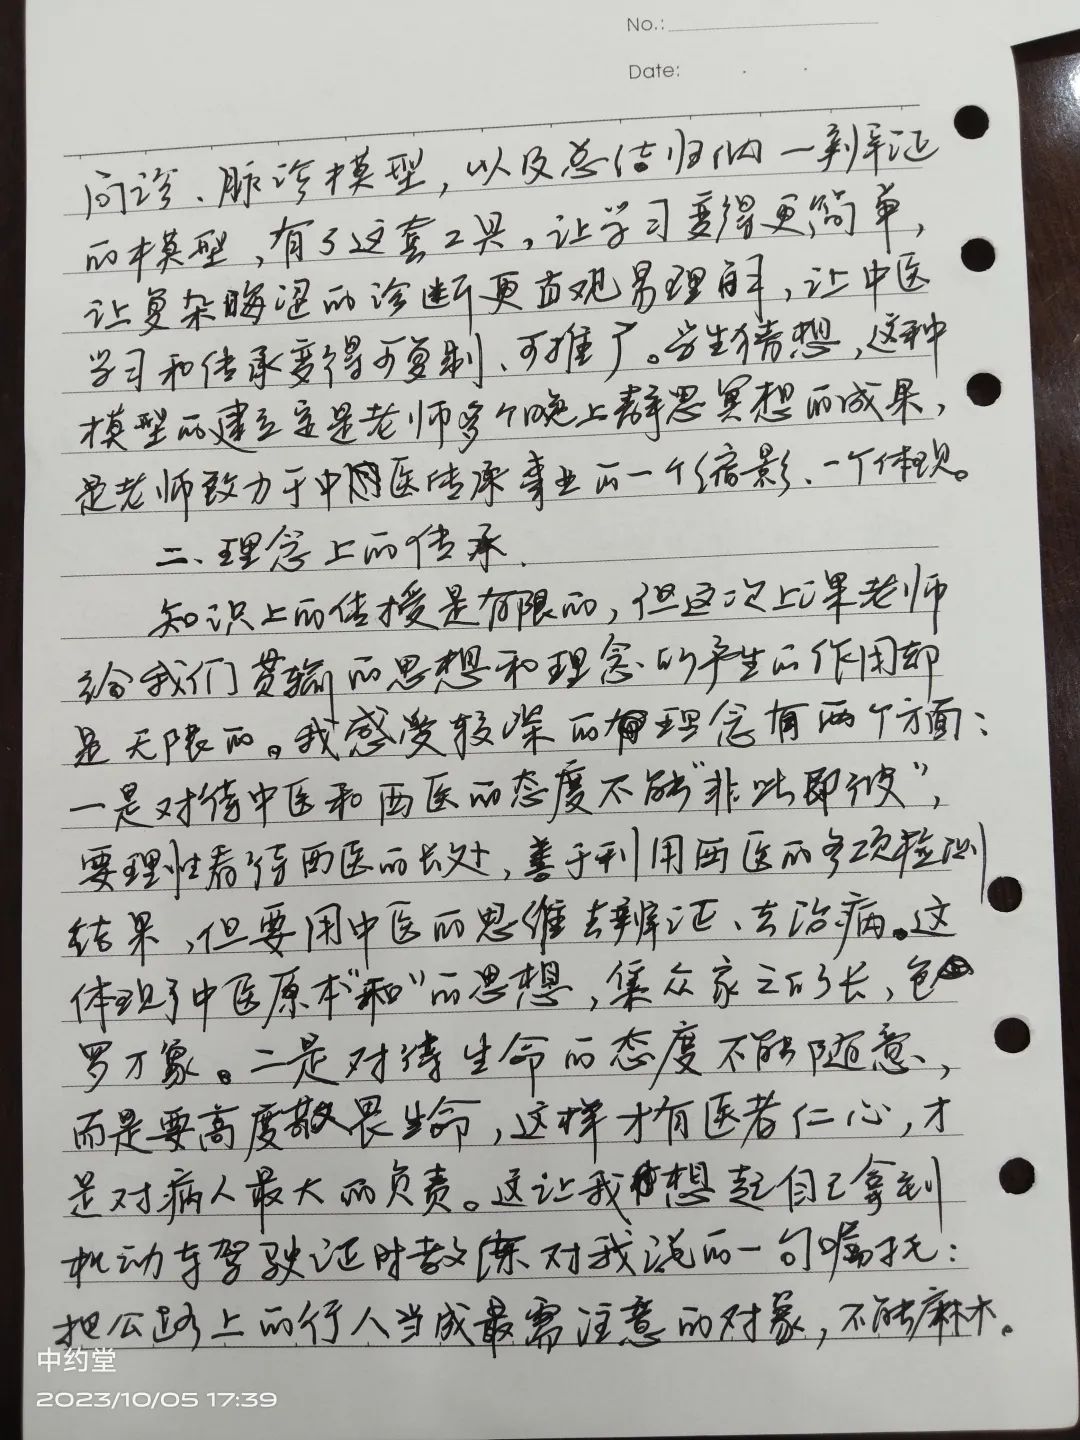 No.:
Date:
问诊、脉诊模型，以及总结归纳一剖辛证
的模型，有了这套工具，让学习变得更简单，
让复杂晦涩的诊断更直观易理解，让中医
学习和传承变得可复制、可推广。学生猜想，这种
模型的建立定是老师多个晚上静思冥想的成果，
是老师致力于中医传承事业的一个缩影、一个体现。
二、理念上的传承.
知识上的传授是有限的，但这次上课老师
给我们贯输的思想和理念的产生的作用却
是无限的。我感受较深的理念有两个方面：
一是对待中医和西医的态度不能“非此即彼”，
要理性看待西医的长处，善于利用西医的各项检测
结果，但要用中医的思维去辨证、去治病。这
体现了中医原本“和”的思想，集众家之的长，包
罗万象。二是对待生命的态度不能随意，
而是要高度敬畏生命，这样才有医者仁心，才
是对病人最大的负责。这让我想起自己拿到
机动车驾驶证时教练对我说的一句嘱托：
把公路上的行人当成最需注意的对象，不能麻木。
中约堂
2023/10/05 17:39